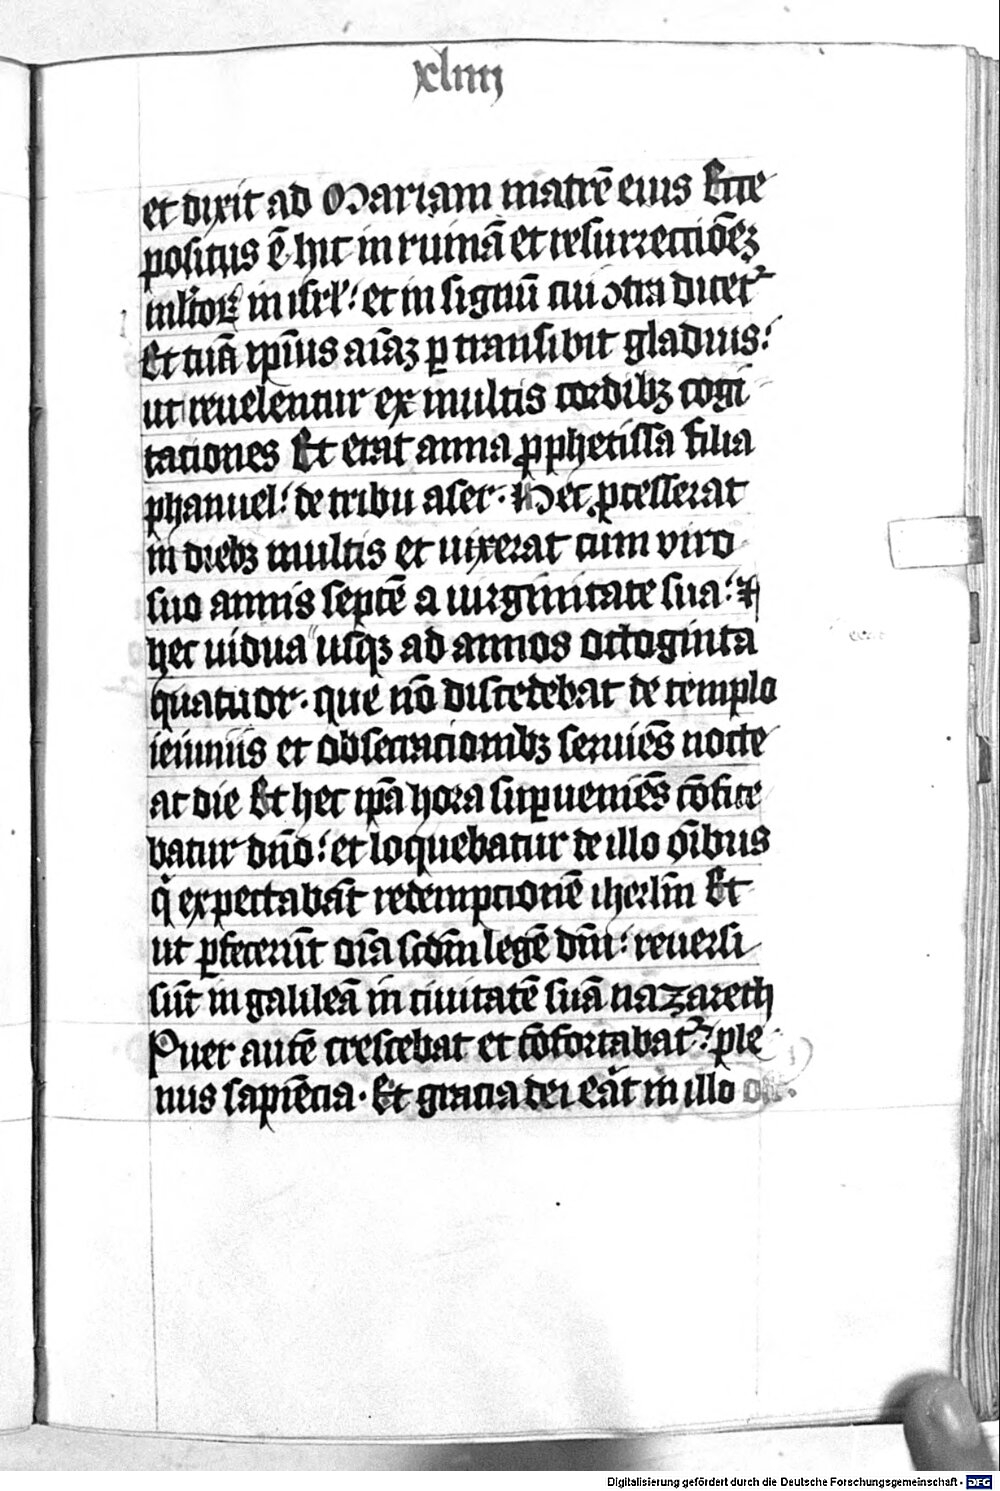 xliiij
et dixit ad Mariam matrē eius Ecce
positus ē hic in ruinā et resurrectiōēꝫ
ml̄toꝝ in isrl̄ et in signū cui ↄtradicet᷑
Et tuā ip̄ius aīaꝫ ꝑtransibit gladius
ut reuelentur ex multis cordibꝫ cogi
tationes Et erat anna ꝓphetissa filia
phanuel de tribu aser · Hec ꝓcesserat
in diebꝫ multis et uixerat cum viro
suo annis septē a uirginitate sua ⁊
hec uidua usqꝫ ad annos octoginta
quatuor · que nō discedebat de templo
ieiuniis et obsecracionibꝫ seruiēs nocte
ac die Et hec ip̄a hora suꝑueniēs cōfite
batur dn̄o et loquebatur de illo oībus
qͥ expectabāt redempcionē iherl̄m Et
ut ꝑfecerūt oīa scdm̄ legē dn̄i reuersi
sūt in galileā in ciuitatē suā nazareth
Puer autē crescebat et cōfortabat᷑ ple
nus sapiēcia · Et gracia dei erāt in illo
Digitalisierung gefördert durch die Deutsche Forschungsgemeinschaft - DFG